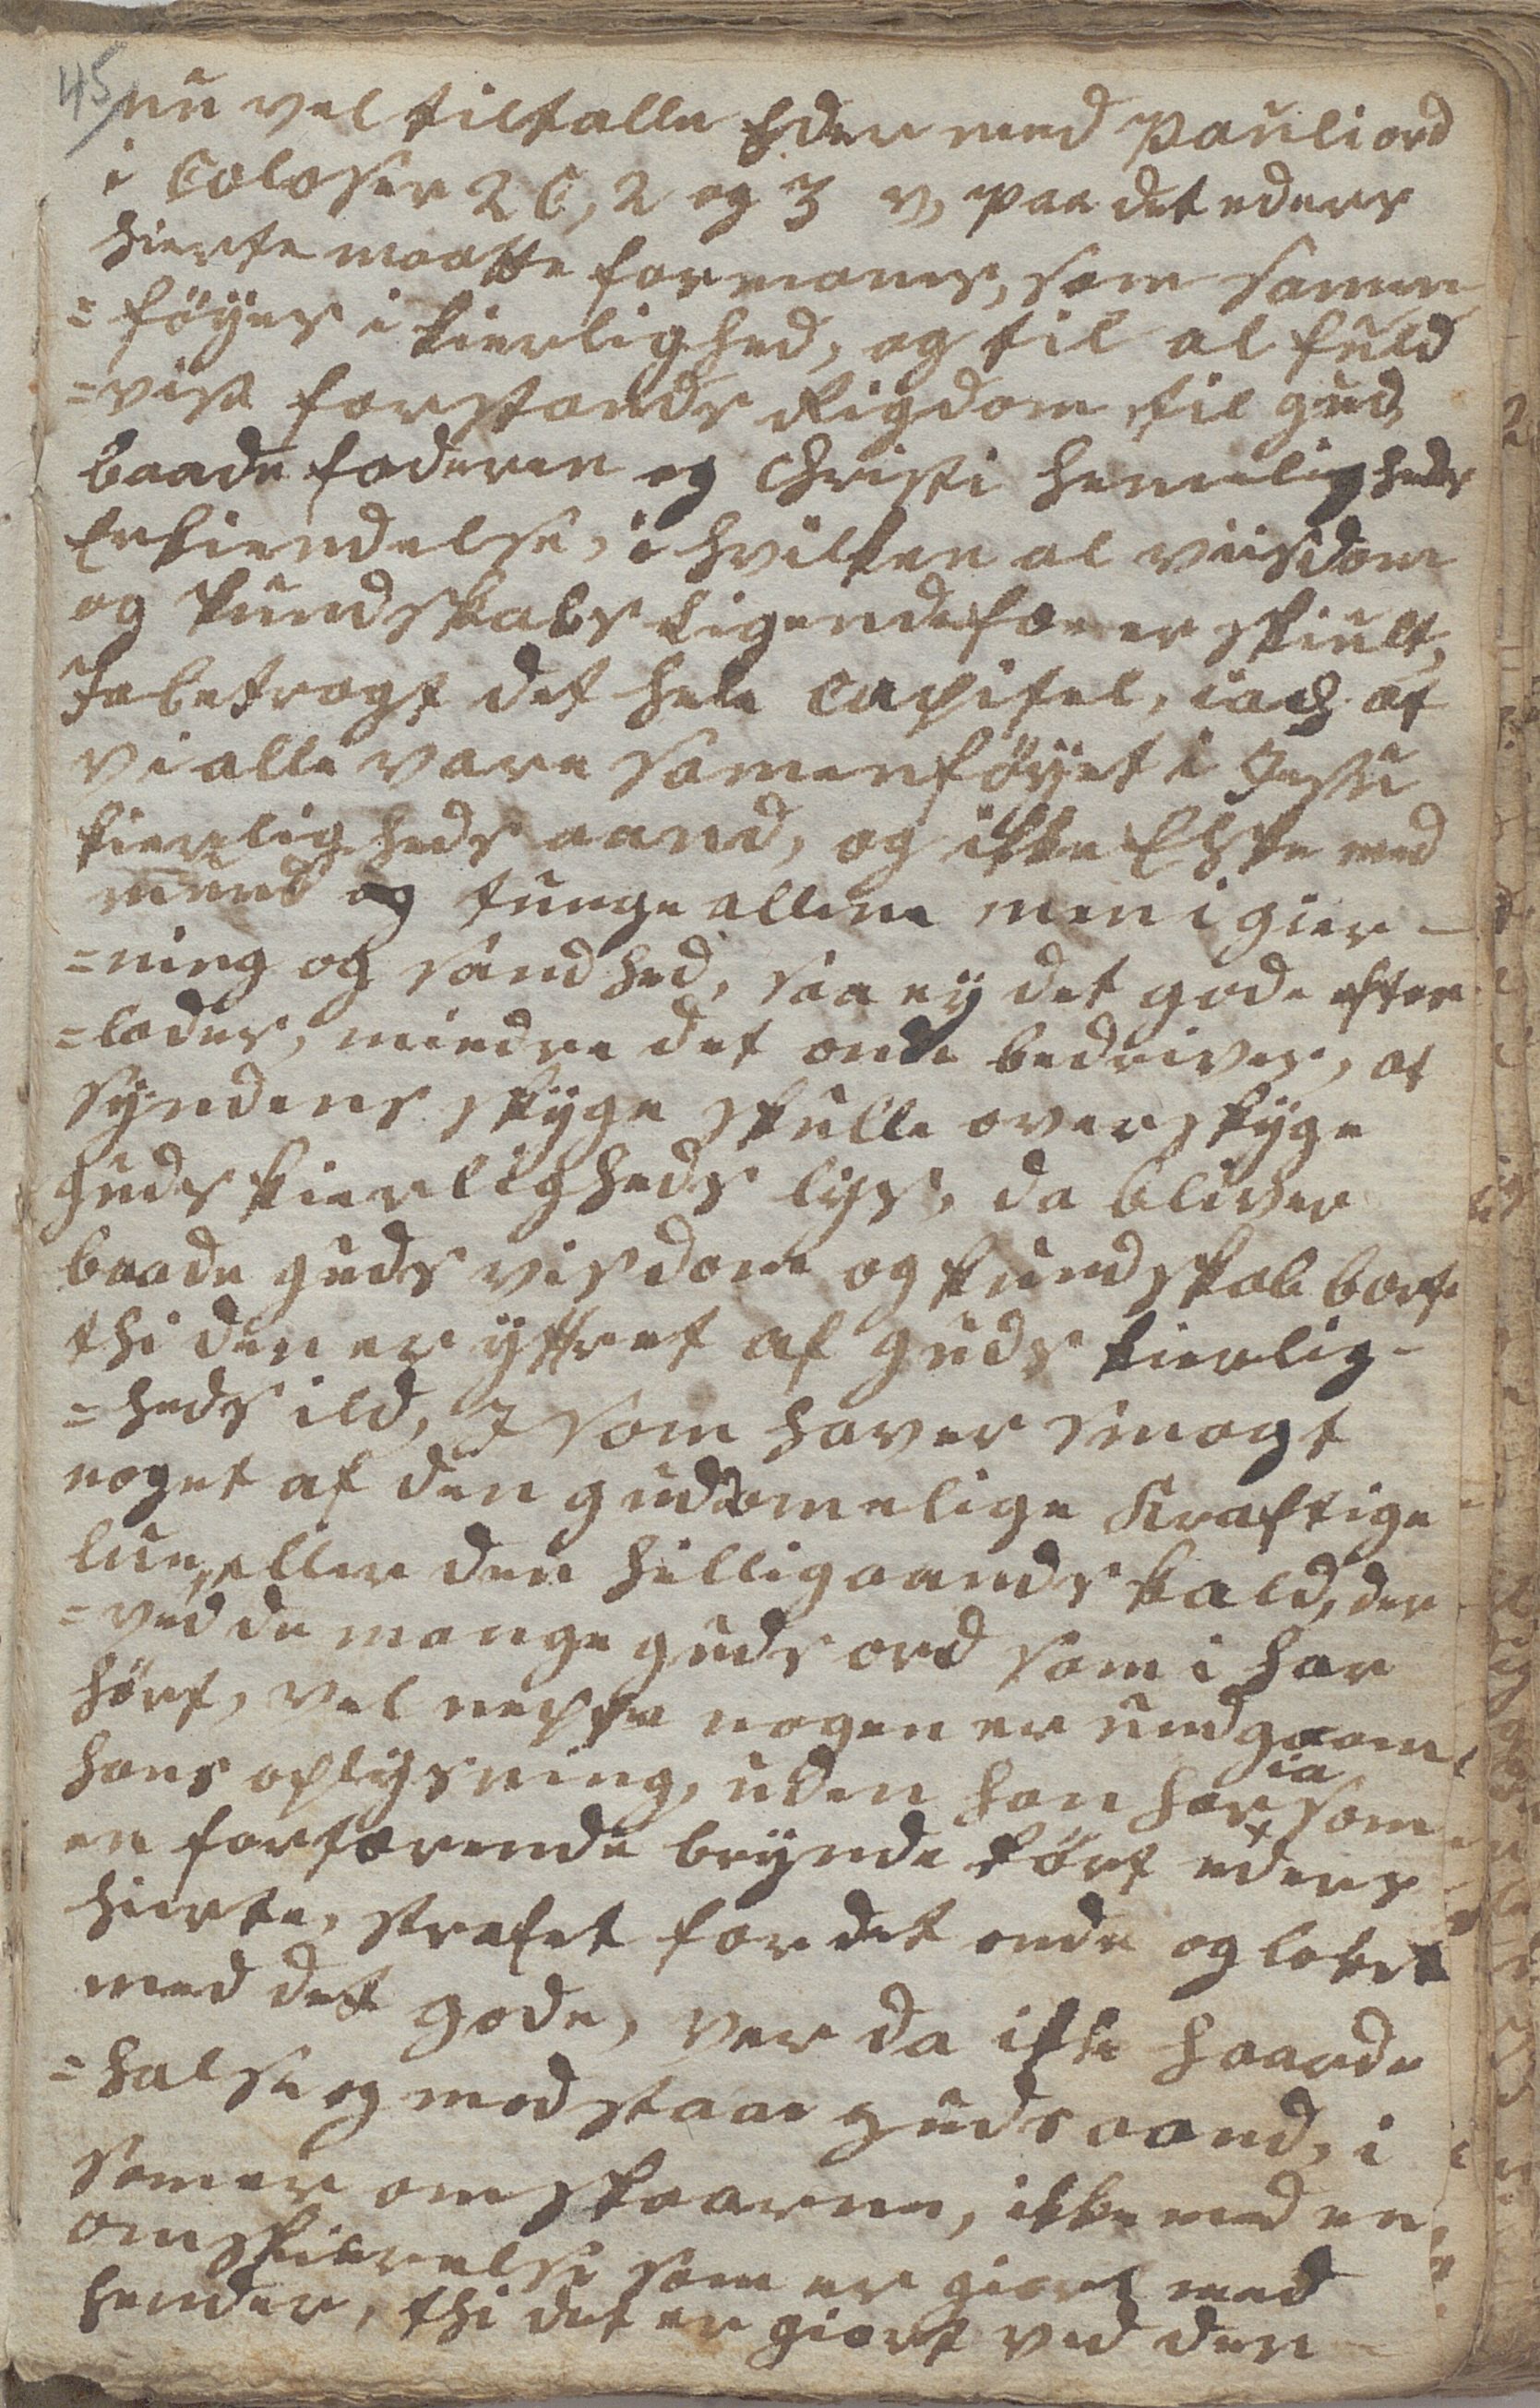 45
nu vel tiltalle Eder med Pauli ord
i Coloser 2 C, 2 og 3 v, paa det eders
hierte maatte formanes, som samen
=föÿes i kierlighed, og til al fuld
=vise forstands Rigdom til gud,
baade faderen og Christi hemeligheds
Erkiendelse, i hvilken al viisdom
og kundskabs ligendefæ er skiult,
Ja betragt det hele Capitel, iach at
vi alle vare samenföÿet i Jesu
kierligheds aand, og ikke Elske med
mund og tunge allene men i gier-
=ning og sandhed, saa eÿ det gode efter
=lades, mindre det onde bedrives, at
syndens skÿge skulle overskÿge
Guds kierligheds lÿs, da bliver
baade guds visdom og kundskab borte
thi den er ÿttret af guds kierlig-
=heds ild, I som haver smagt
noget af den gudommelige Kraftige
lue, eller den hilligaands kald, der
=ved de mange guds ord som i har
hört, vel neppe nogen er undgaaen
hans oplÿsning, uden han har ia som
en fortærende brÿnde rört eders
hierte, strafet for det onde og loket
med det gode, ver da ikke haarde
=halse og modstaar guds aand, i
som er omskaarne, ikke med en
omskierelse som er giort med
hender, thi det er giort ved den